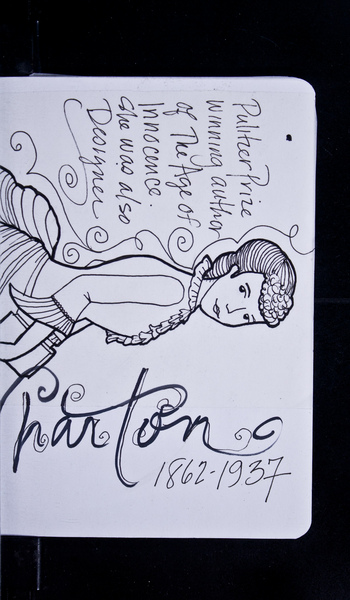 Pulitzer Prize
winning author
of The Age of
Innocence.
She was also
Designer
harton
1862-1937